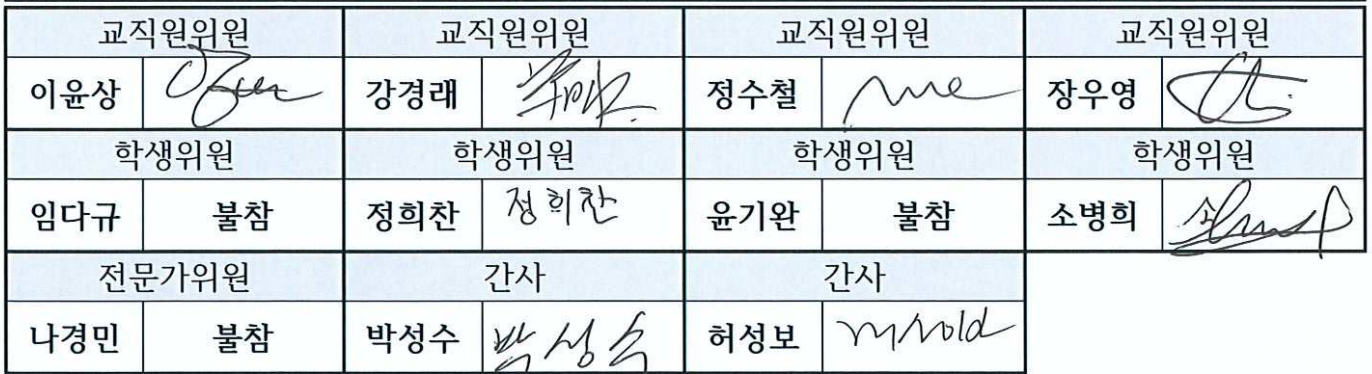 교직원위원 교직원위원 교직원위원 교직원위원
이윤상 강경래 정수철 장우영
학생위원 학생위원 학생위원 학생위원
임다규 불참 정희찬 정희찬 윤기완 불참 소병희
전문가위원 간사 간사
나경민 불참 박성수 박성수 허성보